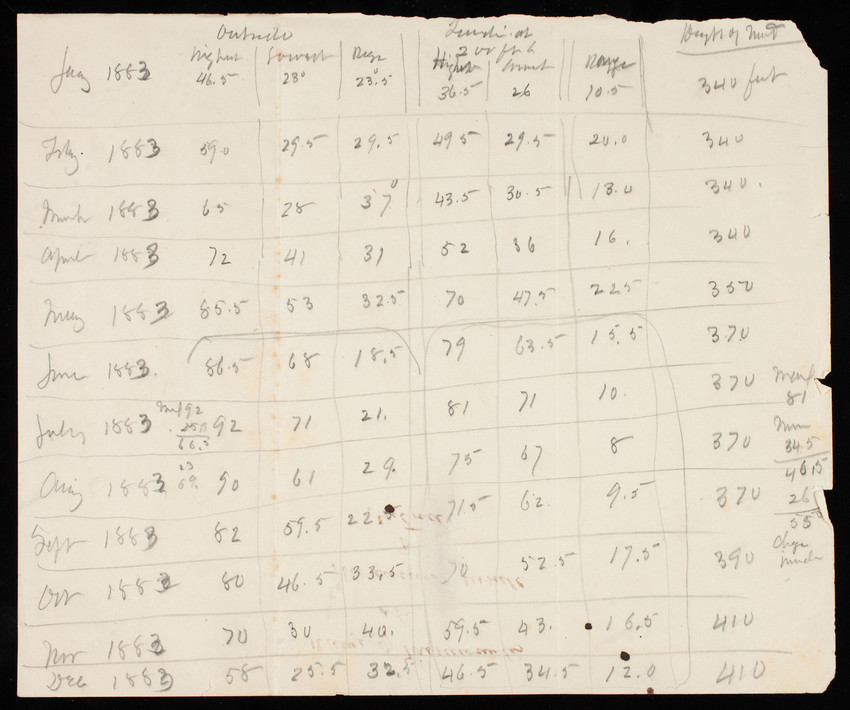 Outside Inside at Height of Mont
200 feet
Highest Lowest Range Highest Lowest Range
Jany 1883 46.5 23° 23.5 36.5 26 10.5 340 feet
Feby. 1883 59.0 29.5 29.5 49.5 29.5 20.0 340
March 1883 65 28 37° 43.5 30.5 13.0 340.
April 1883 72 41 31 52 36 16. 340
May 1883 85.5 53 32.5 70 47.5 22.5 350
June 1883. 86.5 68 18.5 79 63.5 15.5 370
July 1883 92 71 21. 81 71 10. 370
92
25.5
66.5
Aug 1883 90 61 29. 75 67 8 370
23
69.
Sept 1883 82 59.5 22.5 71.5 62. 9.5 370
Oct 1883 80 46.5 33.5 70 52.5 17.5 390
Nov 1883 70 30 40. 59.5 43. 16.5 410
Dec 1883 58 25.5 32.5 46.5 34.5 12.0 410
81
34.5
46.5
26
55°
inside